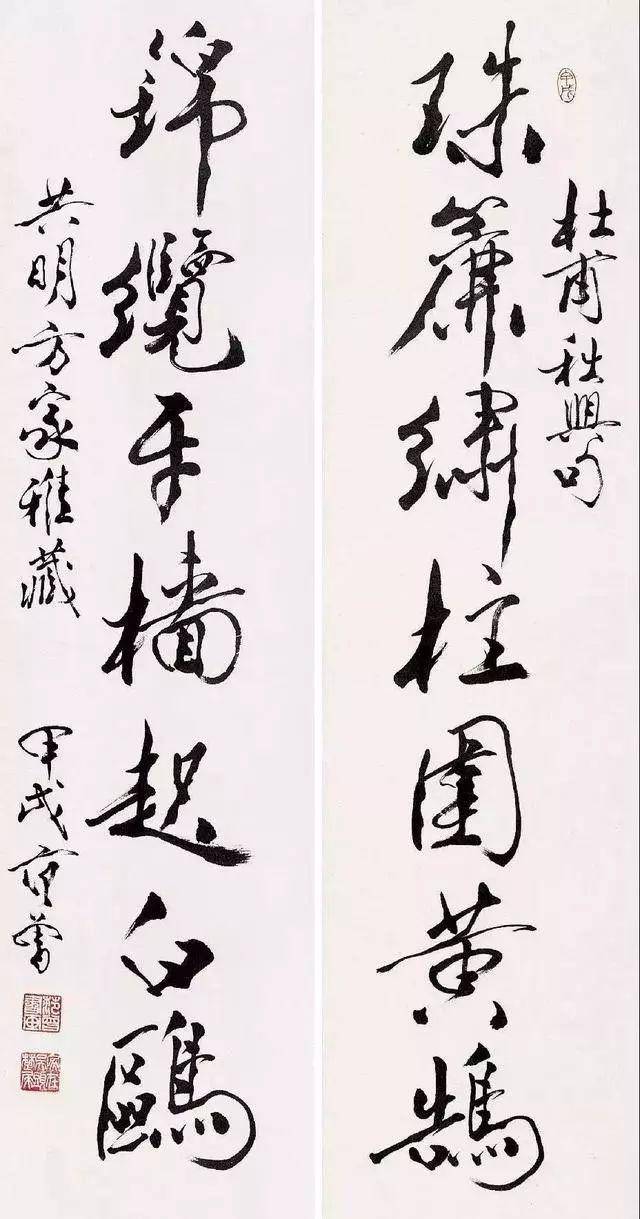 杜甫秋興句
珠簾繡柱圍黄鵠
錦纜牙檣起白鷗
共明方家雅藏
甲戌范曾